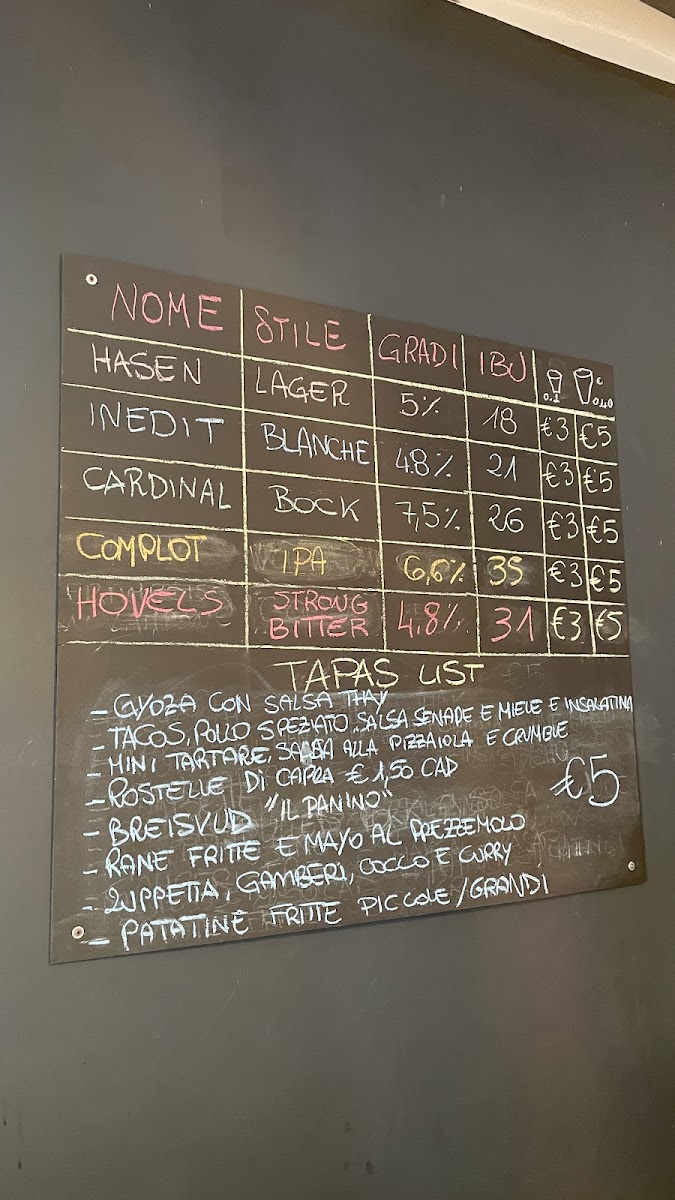 NOME STILE GRADI IBU 0.2 0.40
HASEN LAGER 5% 18 €3 €5
INEDIT BLANCHE 4.8% 21 €3 €5
CARDINAL BOCK 7,5% 26 €3 €5
COMPLOT IPA 6,6% 35 €3 €5
HOVELS STRONG BITTER 4.8% 31 €3 €5
TAPAS LIST
- GYOZA CON SALSA THAY
- TACOS, POLLO SPEZIATO, SALSA SENAPE E MIELE E INSALATINA
- MINI TARTARE, SALSA ALLA PIZZAIOLA E CRUMBLE
- ROSTELLE DI CAPRA €1,50 CAD
€5
- BREISVUD "IL PANINO"
- RANE FRITTE E MAYO AL PREZZEMOLO
- ZUPPETTA, GAMBERI, COCCO E CURRY
- PATATINE FRITTE PICCOLE/GRANDI